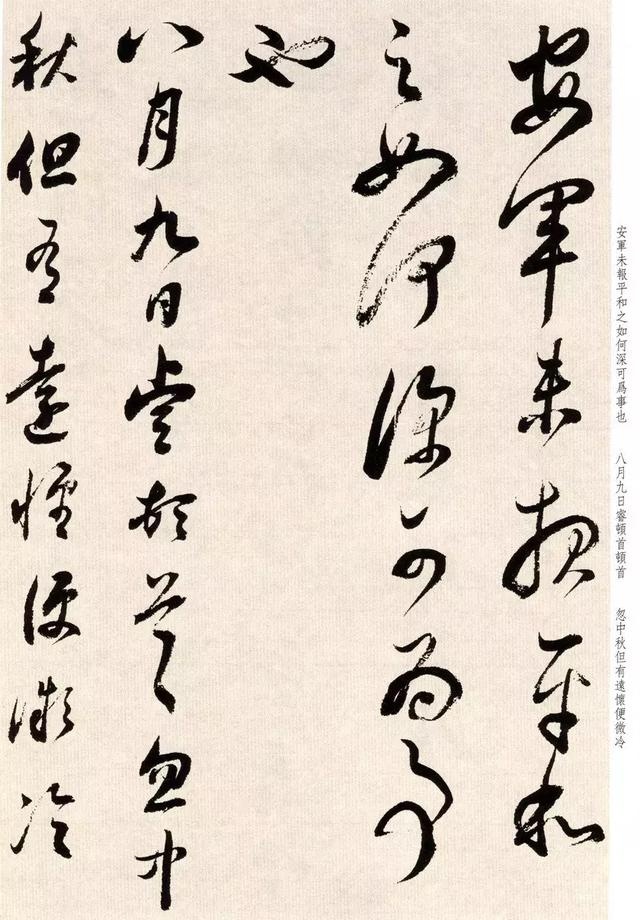 安軍未報平和
之如何深可為事
也
八月九日睿頓首〻忽中
秋但有遠懷便微冷
安軍未報平和之如何深可爲事也 八月九日睿頓首頓首 忽中秋但有遠懷便微冷